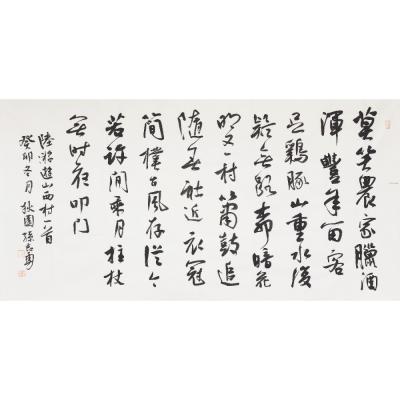 莫笑農家臘酒
渾豐年留客
足鷄豚山重水復
疑無路柳暗花
明又一村簫鼓追
隨春社近衣冠
簡樸古風存從今
若許閒乘月拄杖
無時夜叩门
陸游遊山西村一首
癸卯冬月秋園孫